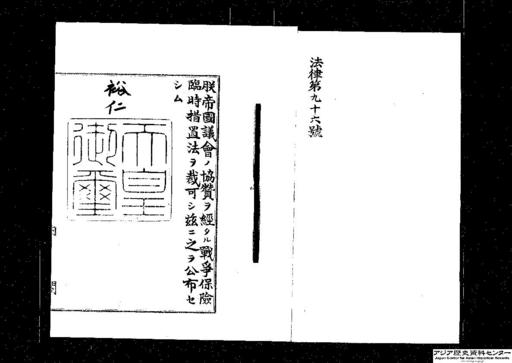 法律第九十六號
朕帝國議會ノ協贊ヲ經タル戰爭保險
臨時措置法ヲ裁可シ茲ニ之ヲ公布セ
シム
裕仁
天皇
御璽
内閣
アジア歴史資料センター
Japan Center for Asian Historical Records